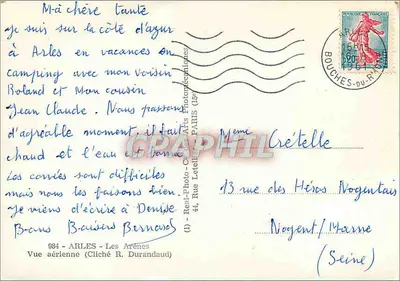 Ma chère tante
je suis sur la côte d'azur
à Arles en vacances en
camping avec mon voisin
Roland et Mon cousin
Jean Claude. Nous passons
d'agréable moment, il fait
chaud et l'eau est bonne
Les corvées sont difficiles
mais nous les faisons bien.
Je viens d'écrire à Denise
Bons Baisers Bernard
984 - ARLES - Les Arènes
Vue aérienne (Cliché R. Durandaud)
44, Rue Letel PARIS
BOUCHES-DU-RHONE
CPAPHIL
Mme Crételle
13 rue des Héros Nogentais
Nogent/Marne
(Seine)